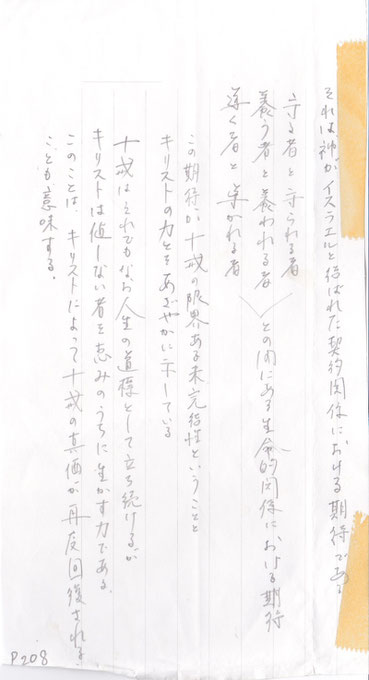 それは、神がイスラエルと結ばれた契約関係における期待である
守る者と守られる者
養う者と養われる者
導く者と導かれる者
との間にある生命的関係における期待
この期待が十戒の限界ある未完結性ということと
キリストの力とをあざやかに示している
十戒はそれでもなお人生の道標として立ち続けるが
キリストは値しない者を恵みのうちに生かす力である.
このことは、キリストによって十戒の真価が再度回復される.
ことも意味する.
P208